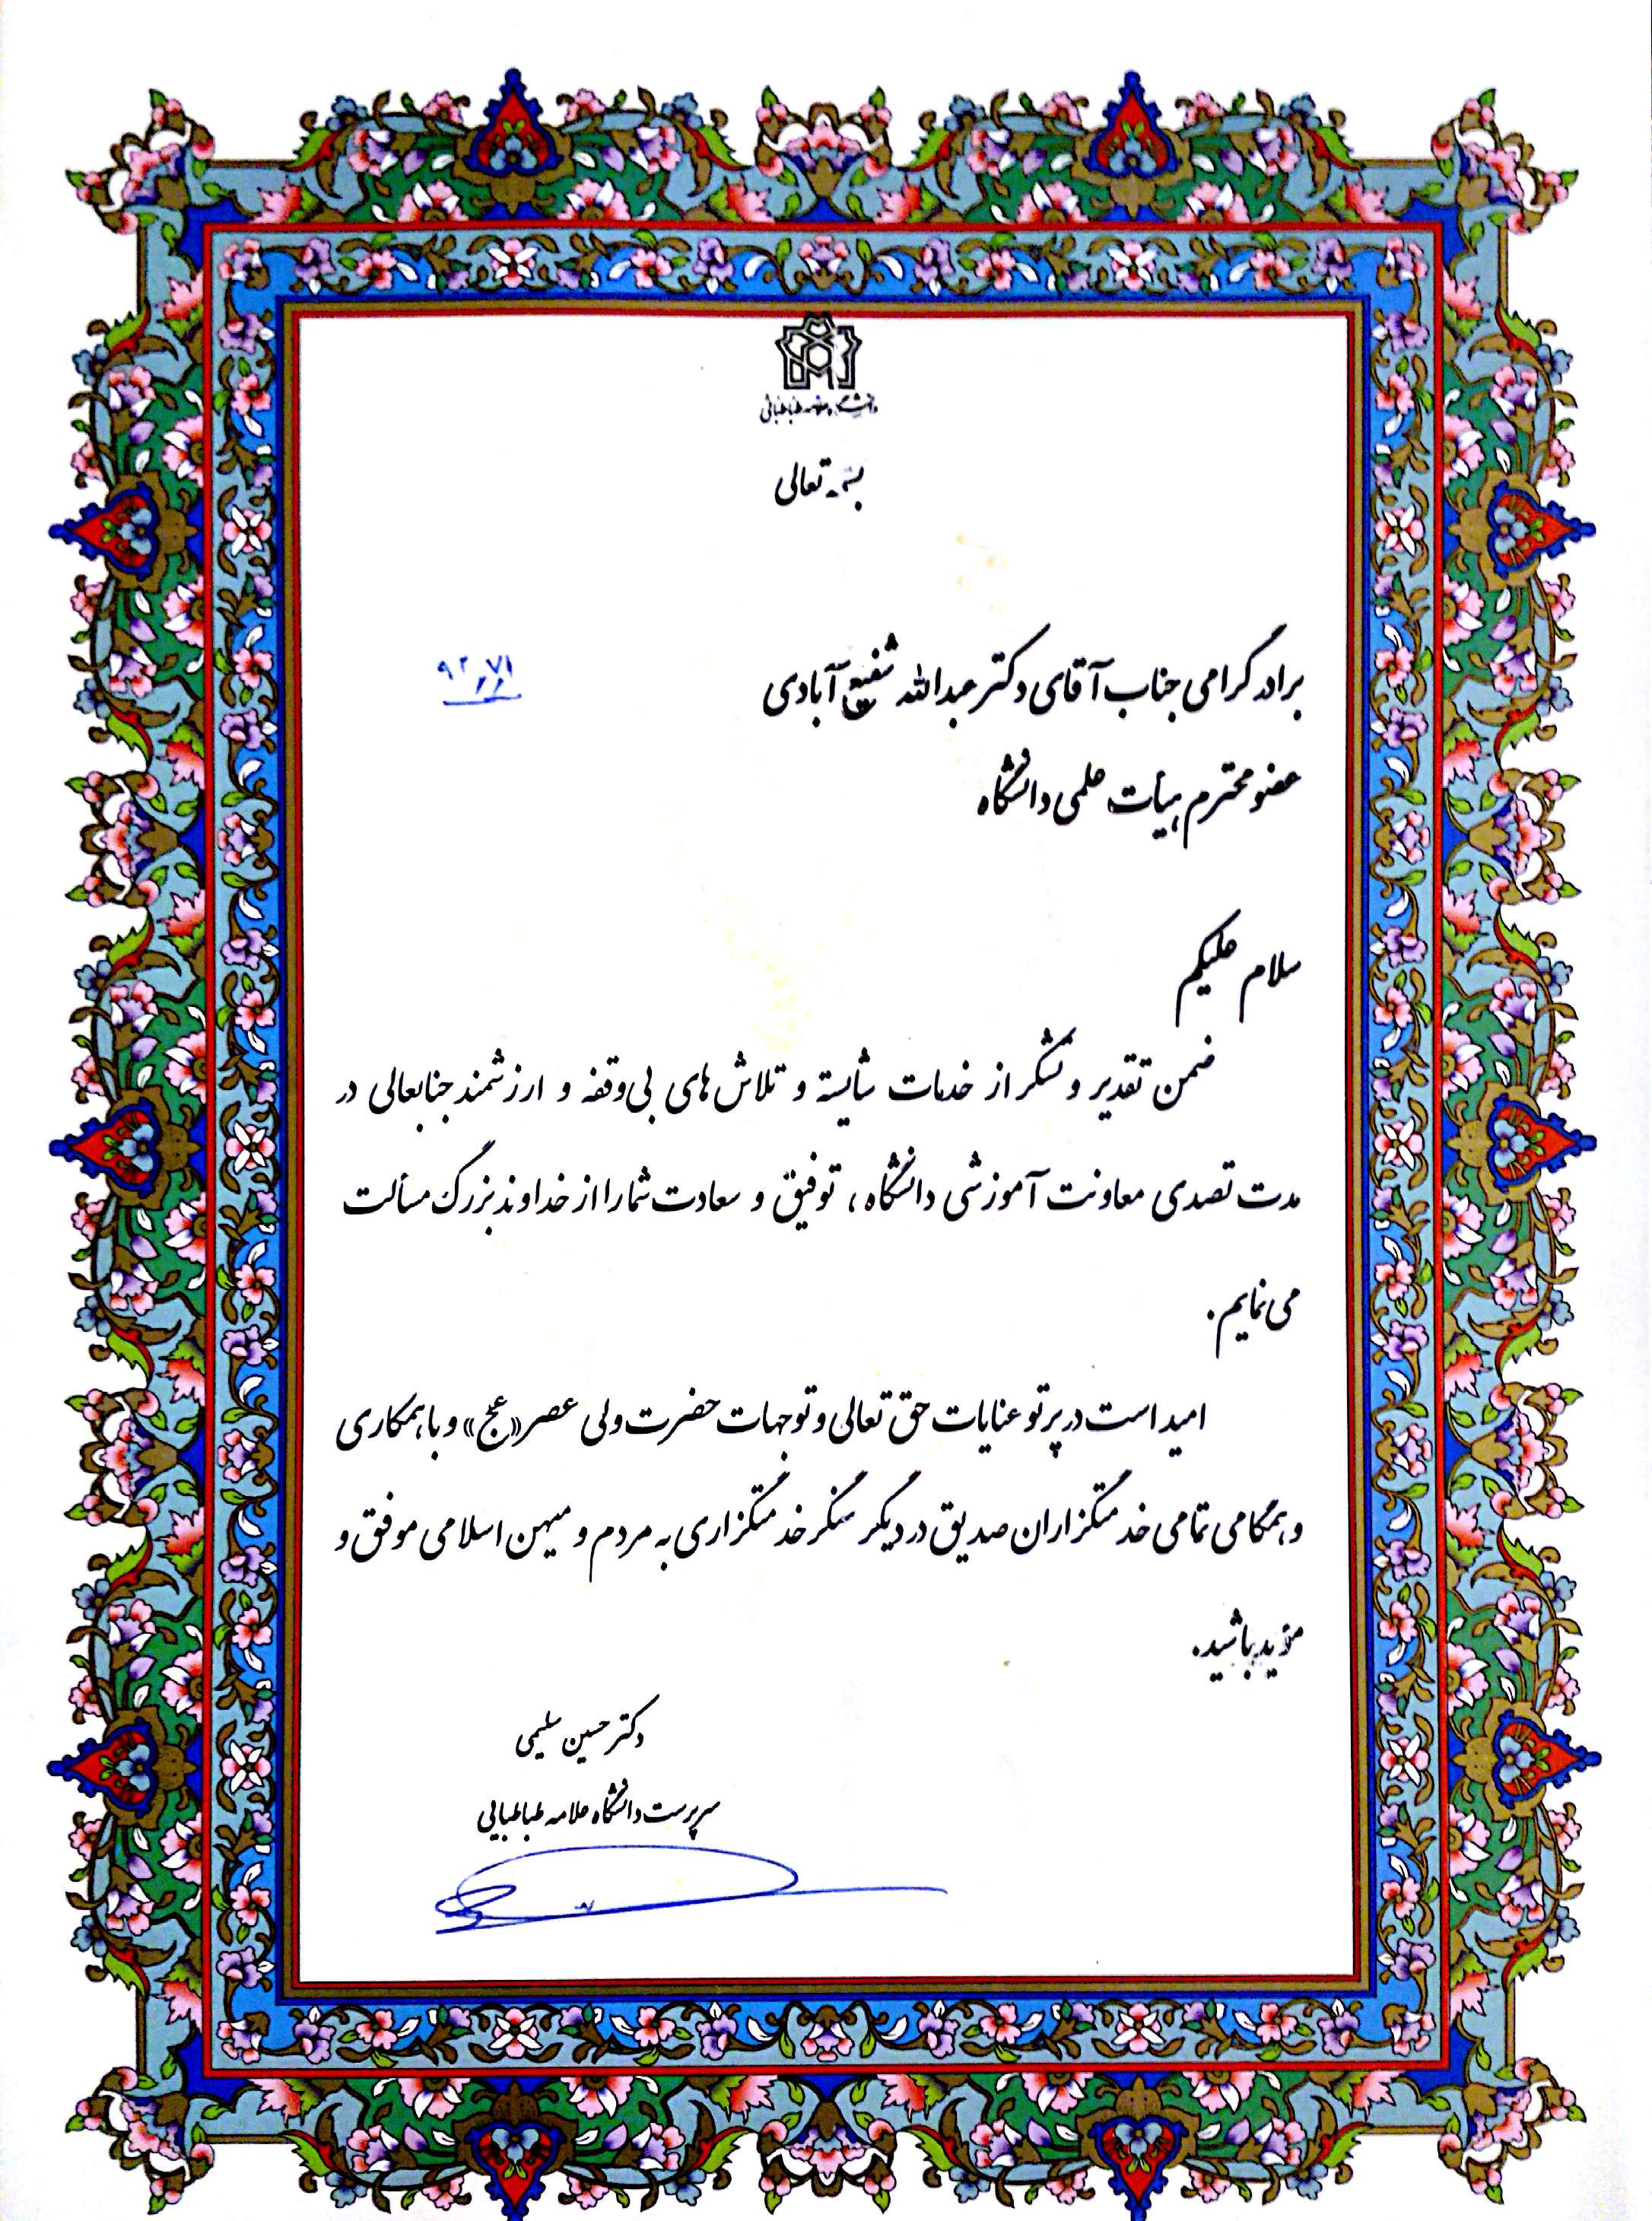 دانشگاه علامه طباطبائی
بسمه تعالی
برادر گرامی جناب آقای دکتر عبدالله شفیع آبادی
عضو محترم هیأت علمی دانشگاه
سلام علیکم
ضمن تقدیر و تشکر از خدمات شایسته و تلاش های بی‌وقفه و ارزشمند جنابعالی در
مدت تصدی معاونت آموزشی دانشگاه، توفیق و سعادت شما را از خداوند بزرگ مسألت
می‌نمایم.
امید است در پرتو عنایات حق تعالی و توجهات حضرت ولی عصر «عج» و با همکاری
و همگامی تمامی خدمتگزاران صدیق در دیگر سنگر خدمتگزاری به مردم و میهن اسلامی موفق و
مؤید باشید.
دکتر حسین سلیمی
سرپرست دانشگاه علامه طباطبایی